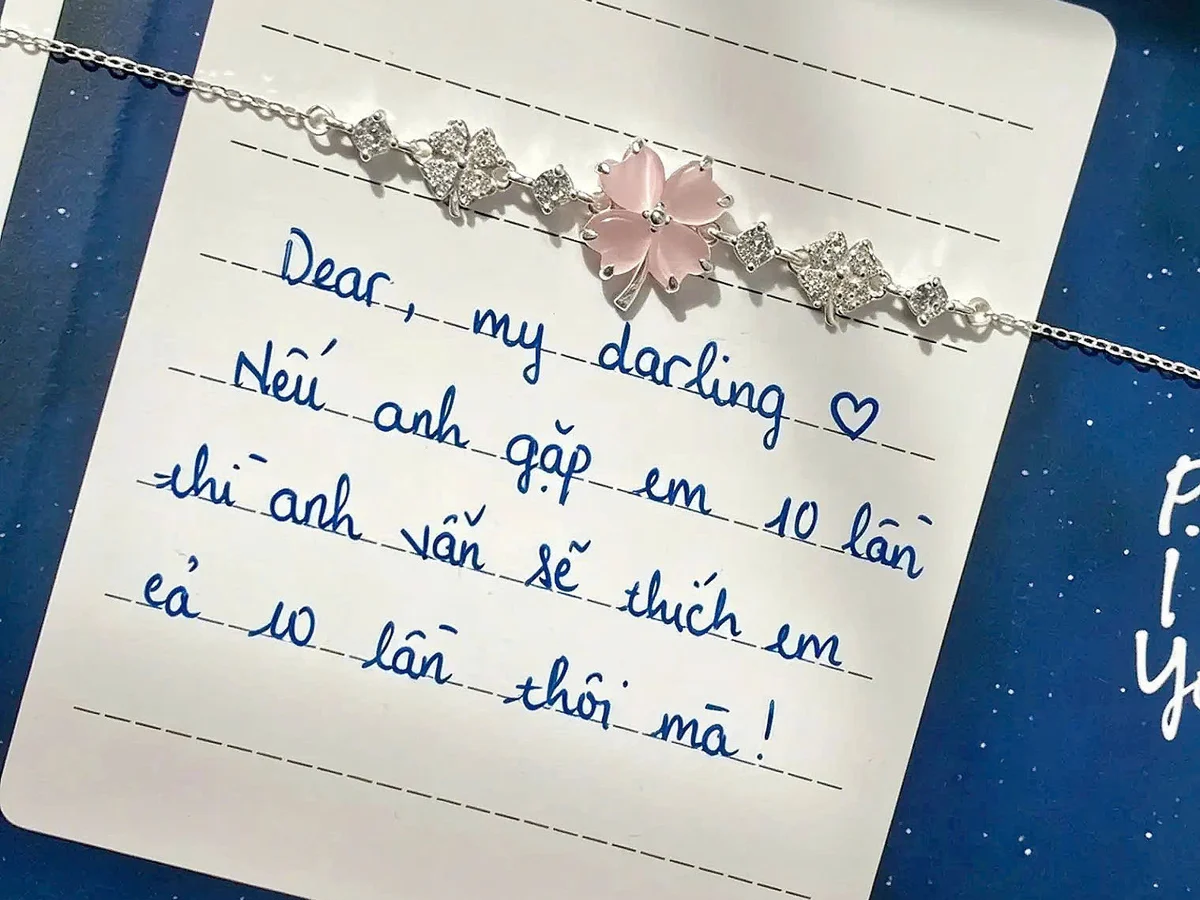 Dear, my darling ♡
Nếu anh gặp em 10 lần
thì anh vẫn sẽ thích em
cả 10 lần thôi mà!
P.
I